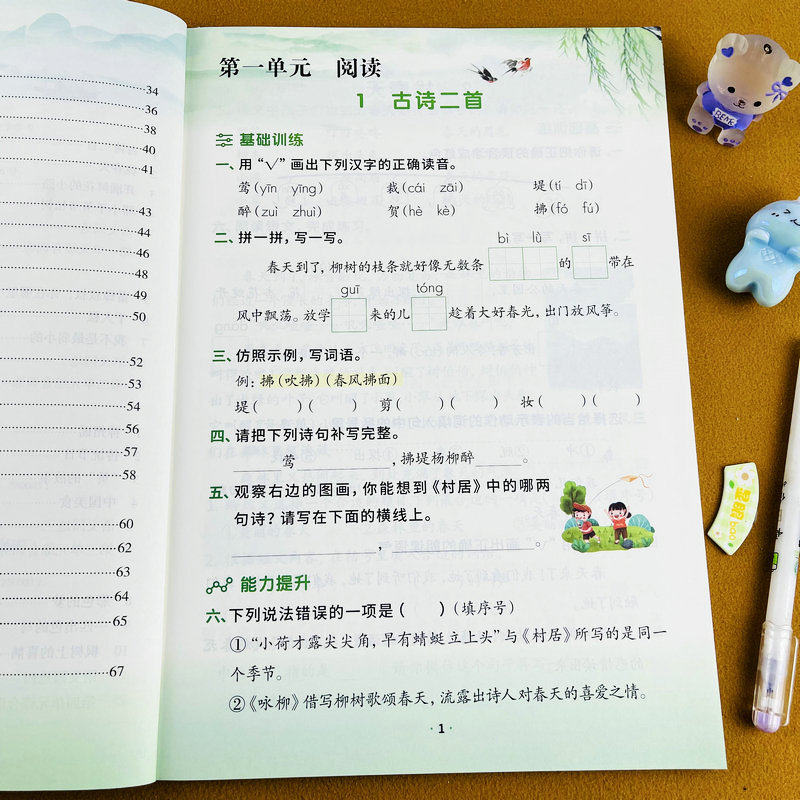 34
36
38
40
41
43
44
46
48
49
50
52
53
54
56
57
58
60
62
63
64
65
67
第一单元 阅读
1 古诗二首
基础训练
一、用“√”画出下列汉字的正确读音。
莺(yīn yīng) 裁(cái zāi) 堤(tí dī)
醉(zuì zhuì) 贺(hè kè) 拂(fó fú)
二、拼一拼,写一写。
bì lǜ sī
春天到了,柳树的枝条就好像无数条 的 带在
guī tóng
风中飘荡。放学 来的儿 趁着大好春光,出门放风筝。
三、仿照示例,写词语。
例:拂(吹拂)(春风拂面)
堤( )( ) 剪( )( ) 妆( )( )
四、请把下列诗句补写完整。
莺 ,拂堤杨柳醉 。
五、观察右边的图画,你能想到《村居》中的哪两
句诗?请写在下面的横线上。
, 。
能力提升
六、下列说法错误的一项是( )(填序号)
①“小荷才露尖尖角,早有蜻蜓立上头”与《村居》所写的是同一
个季节。
②《咏柳》借写柳树歌颂春天,流露出诗人对春天的喜爱之情。
·1·